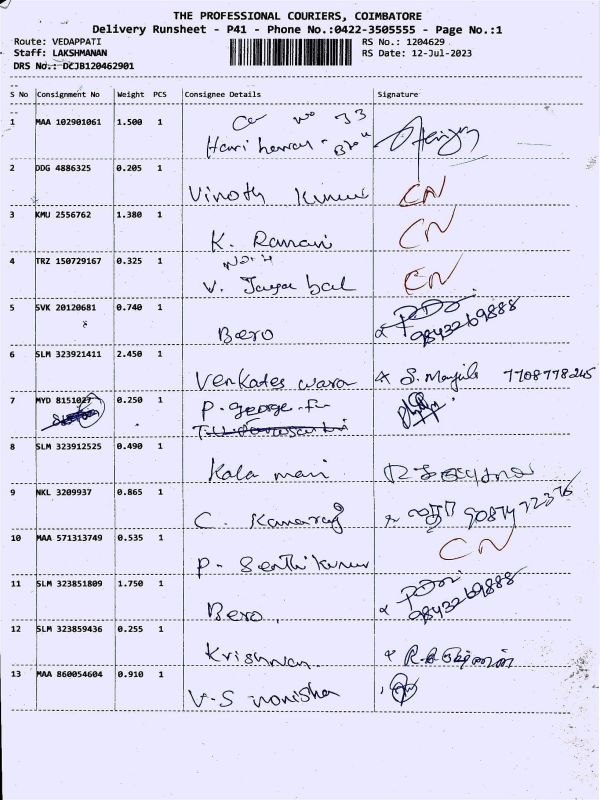 THE PROFESSIONAL COURIERS, COIMBATORE
Delivery Runsheet - P41 - Phone No.:0422-3505555 - Page No.:1
Route: VEDAPPATI RS No.: 1204629
Staff: LAKSHMANAN RS Date: 12-Jul-2023
DRS No.: DCJB120462901
S No Consignment No Weight PCS Consignee Details Signature
1 MAA 102901061 1.500 1
33
2 DDG 4886325 0.205 1
Vinoth Kumar CN
3 KMU 2556762 1.380 1
K. Ramani CN
4 TRZ 150729167 0.325 1
V. CN
5 SVK 20120681 0.740 1
Bero 9843269888
6 SLM 323921411 2.450 1
Venkates wara S. Manjula 7708778245
7 MYD 8151027 0.250 1
P. George
8 SLM 323912525 0.490 1
Kala mani
9 NKL 3209937 0.865 1
C. Kamaraj 9087472376
10 MAA 571313749 0.535 1
P. Senthil Kumar CN
11 SLM 323851809 1.750 1
Bero. 9843269888
12 SLM 323859436 0.255 1
Krishnan
13 MAA 860054604 0.910 1
V.S monisha